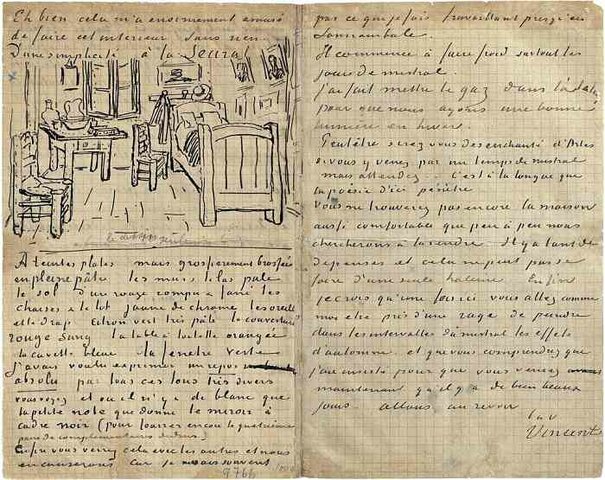 Eh bien cela m'a enormement amusé
de faire cet interieur sans rien
D'une simplicité à la Seurat
A teintes plates mais grossierement brossées
en pleine pâte les murs lilas pale
le sol d'un rouge rompu & fané les
chaises & le lit jaune de chrome les oreillers
et le drap citron vert très pâle la couverture
rouge sang la table à toilette orangée
la cuvette bleue la fenetre verte
J'avais voulu exprimer un repos
absolu par tous ces tons très divers
vous voyez et où il n'y a de blanc que
la petite note que donne le miroir à
cadre noir (pour fourrer encore la quatrième
paire de complementaires dedans)
Enfin vous verrez cela avec les autres et nous
en causerons car je ne sais souvent
pas ce que je fais travaillant presqu'en
somnambule.
Il commence à faire froid surtout les
jours de mistral.
J'ai fait mettre le gaz dans l'atelier
pour que nous ayons une bonne
lumiere en hiver.
Peutêtre serez vous desenchanté d'Arles
si vous y venez par un temps de mistral
mais attendez .. C'est à la longue que
la poésie d'ici pénètre
vous ne trouverez pas encore la maison
aussi confortable que peu à peu nous
chercherons à la rendre. Il y a tant de
depenses et cela ne peut pas se
faire d'une seule haleine. Enfin
je crois qu'une fois ici vous allez comme
moi etre pris d'une rage de peindre
dans les intervalles du mistral les effets
d'automne. et que vous comprendrez que
j'ai insisté pour que vous veniez
maintenant qu'il y a de bien beaux
jours. allons au revoir
t. à v.
Vincent